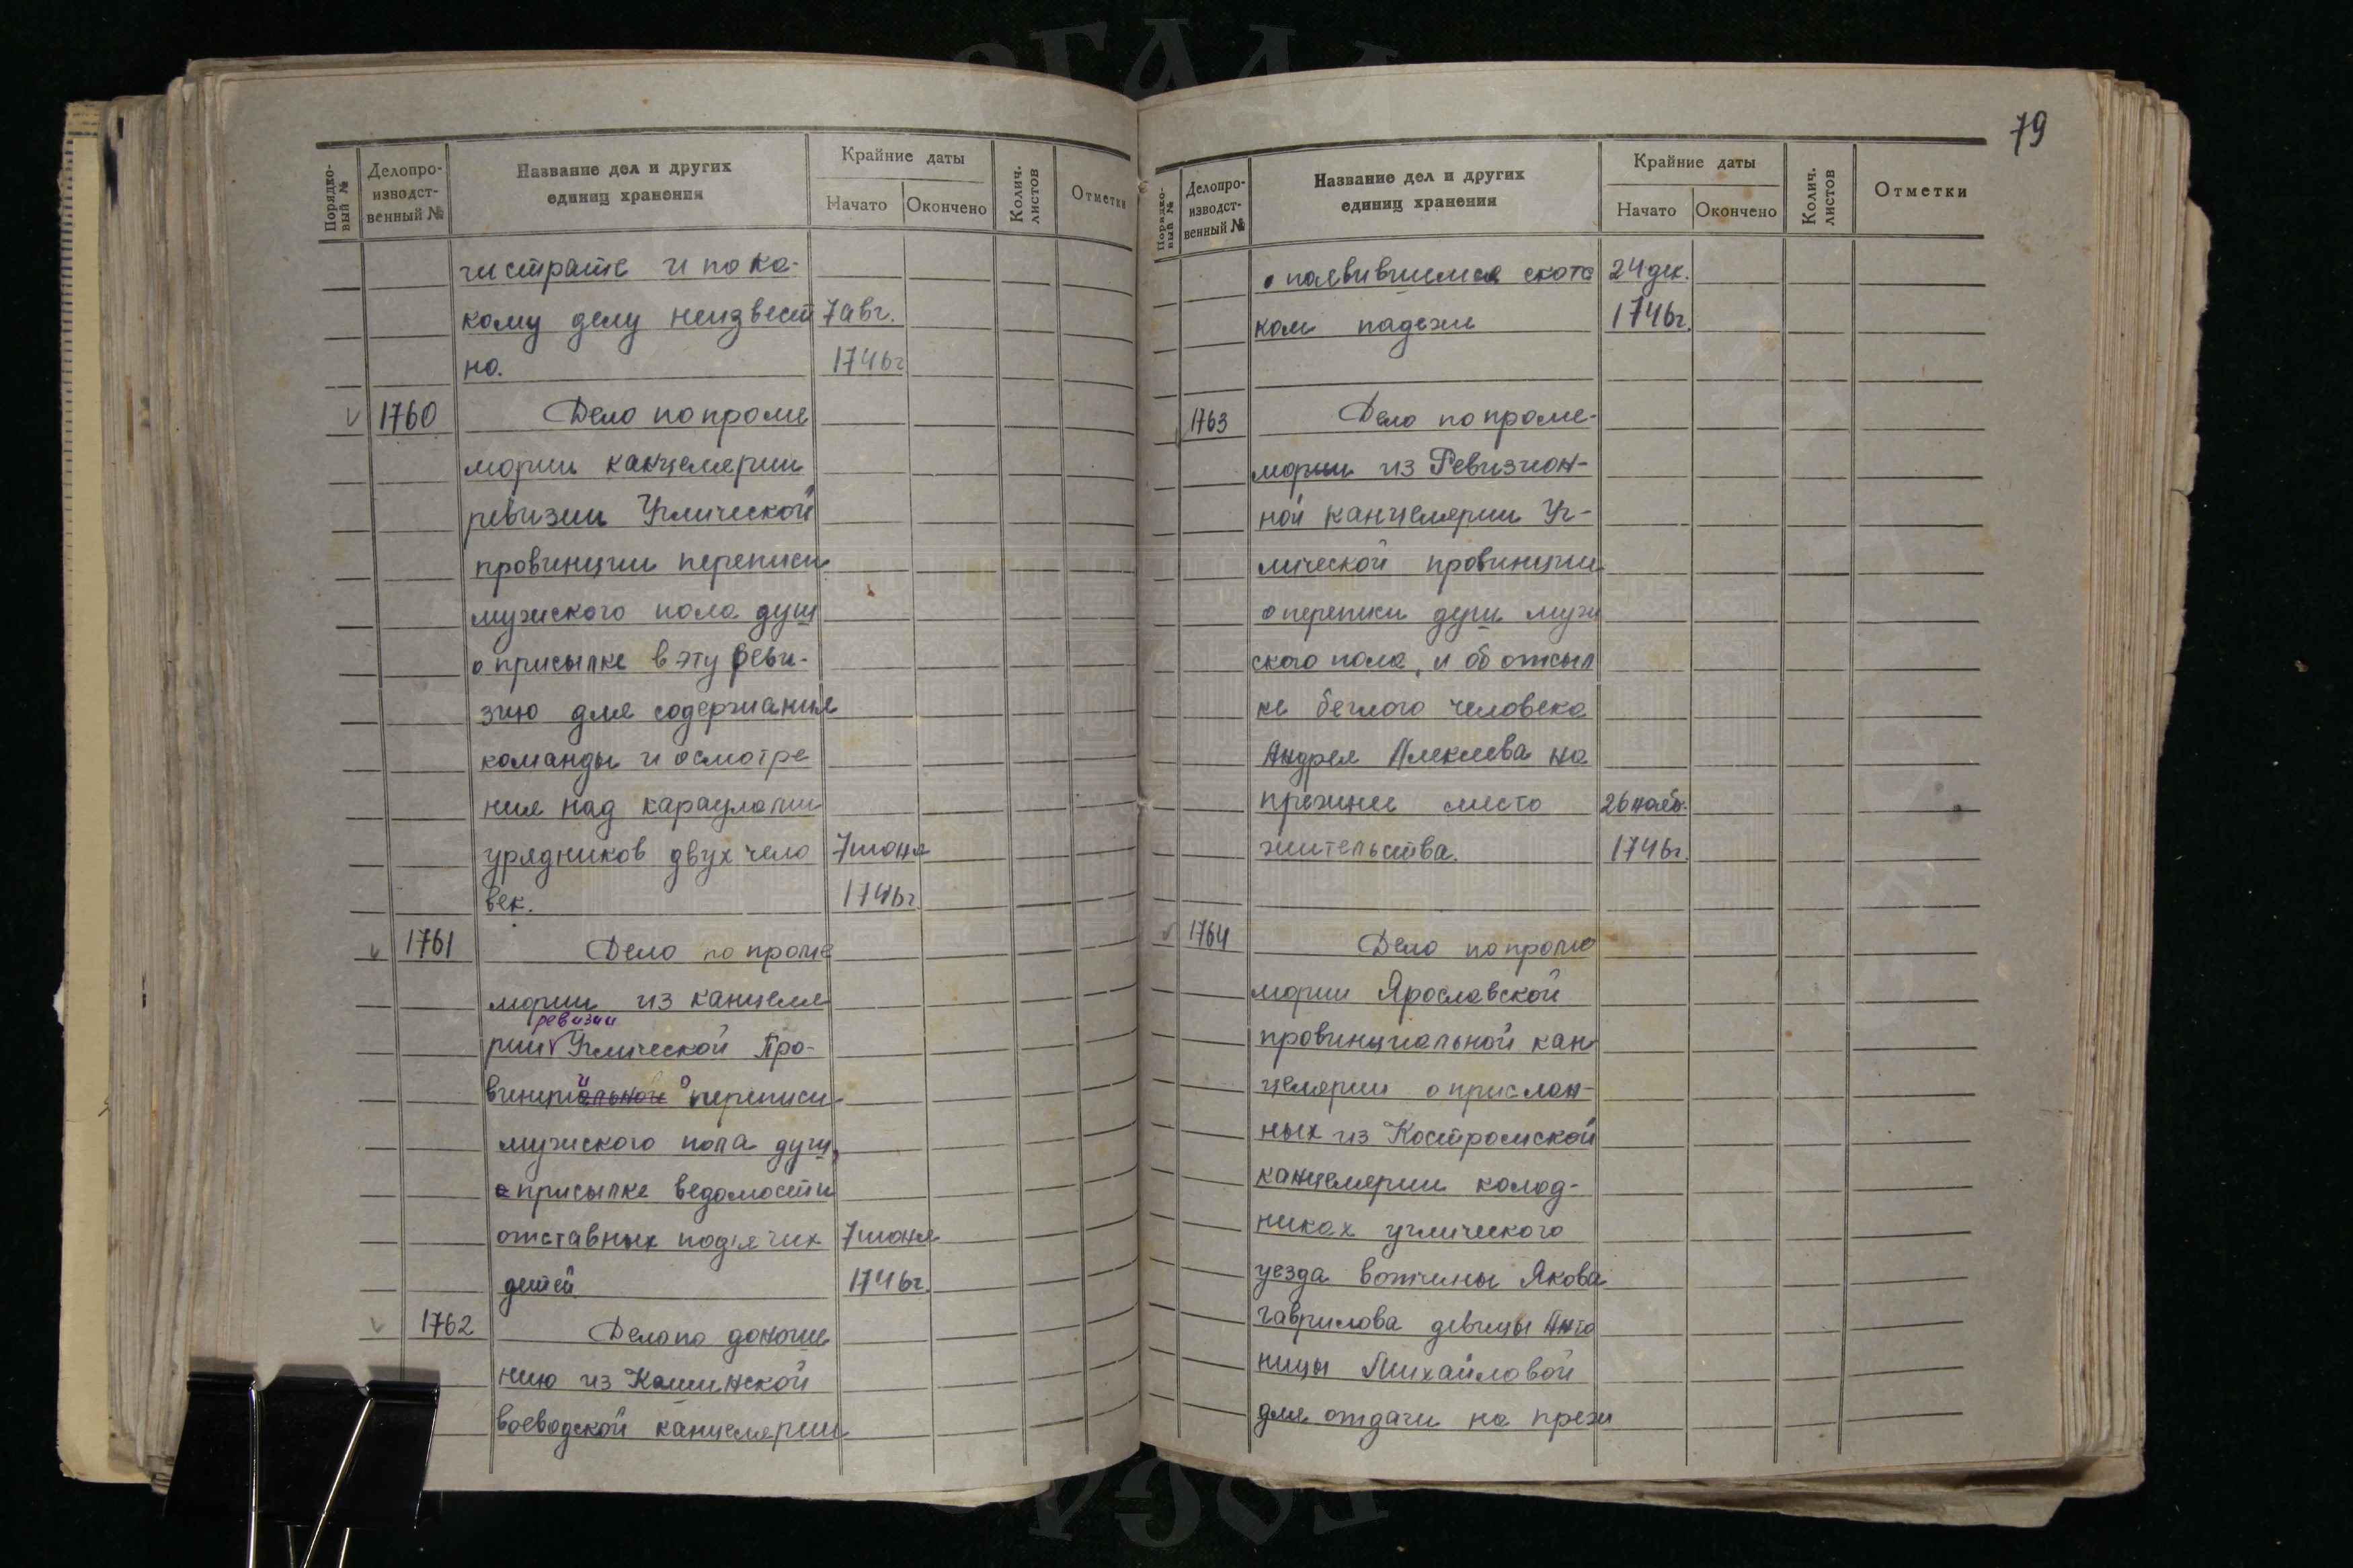 79
Порядко-
вый №
Делопро-
изводст-
венный №
Название дел и других
единиц хранения
Крайние даты
Начато
Окончено
Колич.
листов
Отметки
гистрате и по ка-
кому делу неизвест 7 авг.
но. 1746г
1760 Дело по проме
мории канцелярии
ревизии Углической
провинции переписи
мужского пола душ
о присылке в эту реви-
зию для содержания
команды и осмотре
ния над караулами
урядников двух чело 7 июня
век. 1746г.
1761 Дело по проме
мории из канцеля
ревизии
рии Углической Про-
винции переписи
мужского пола душ,
о присылке ведомости
отставных подьячих 7 июня
детей 1746г.
1762 Дело по доноше
нию из Кашинской
воеводской канцелярии
Порядко-
вый №
Делопро-
изводст-
венный №
Название дел и других
единиц хранения
Крайние даты
Начато
Окончено
Колич.
листов
Отметки
о появившемся скотс 24 дек.
ком падеже 1746г.
1763 Дело по проме-
мории из Ревизион-
ной канцелярии Уг-
лической провинции
о переписи душ муж
ского пола, и об отсыл
ке беглого человека
Андрея Алексеева на
прежнее место 26 нояб.
жительства. 1746г.
1764 Дело по проме
мории Ярославской
провинциальной кан
целярии о прислан-
ных из Костромской
канцелярии колод-
никах углического
уезда вотчины Якова
Гаврилова девицы Анто
ницы Михайловой
для отдачи на преж